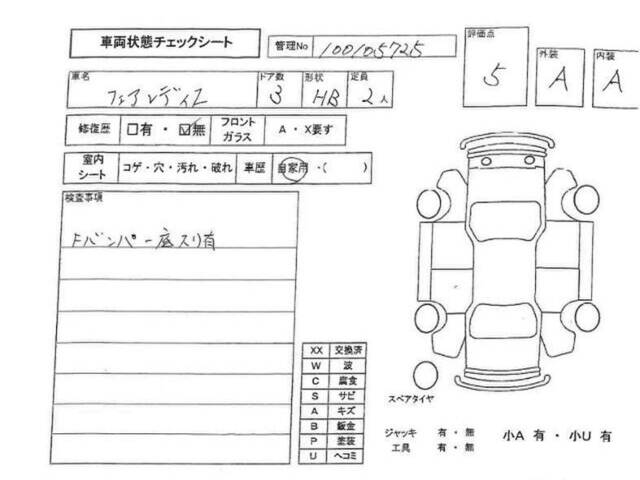 車両状態チェックシート
管理No 100105725
評価点 5
外装 A
内装 A
車名 フェアレディZ
ドア数 3
形状 HB
定員 2人
修復歴 □有・☑無
フロントガラス A・X要す
室内シート コゲ・穴・汚れ・破れ
車歴 自家用・( )
検査事項
Fバンパー底スリ有
XX 交換済
W 波
C 腐食
S サビ
A キズ
B 鈑金
P 塗装
U ヘコミ
スペアタイヤ
ジャッキ 有・無
工具 有・無
小A 有・小U 有